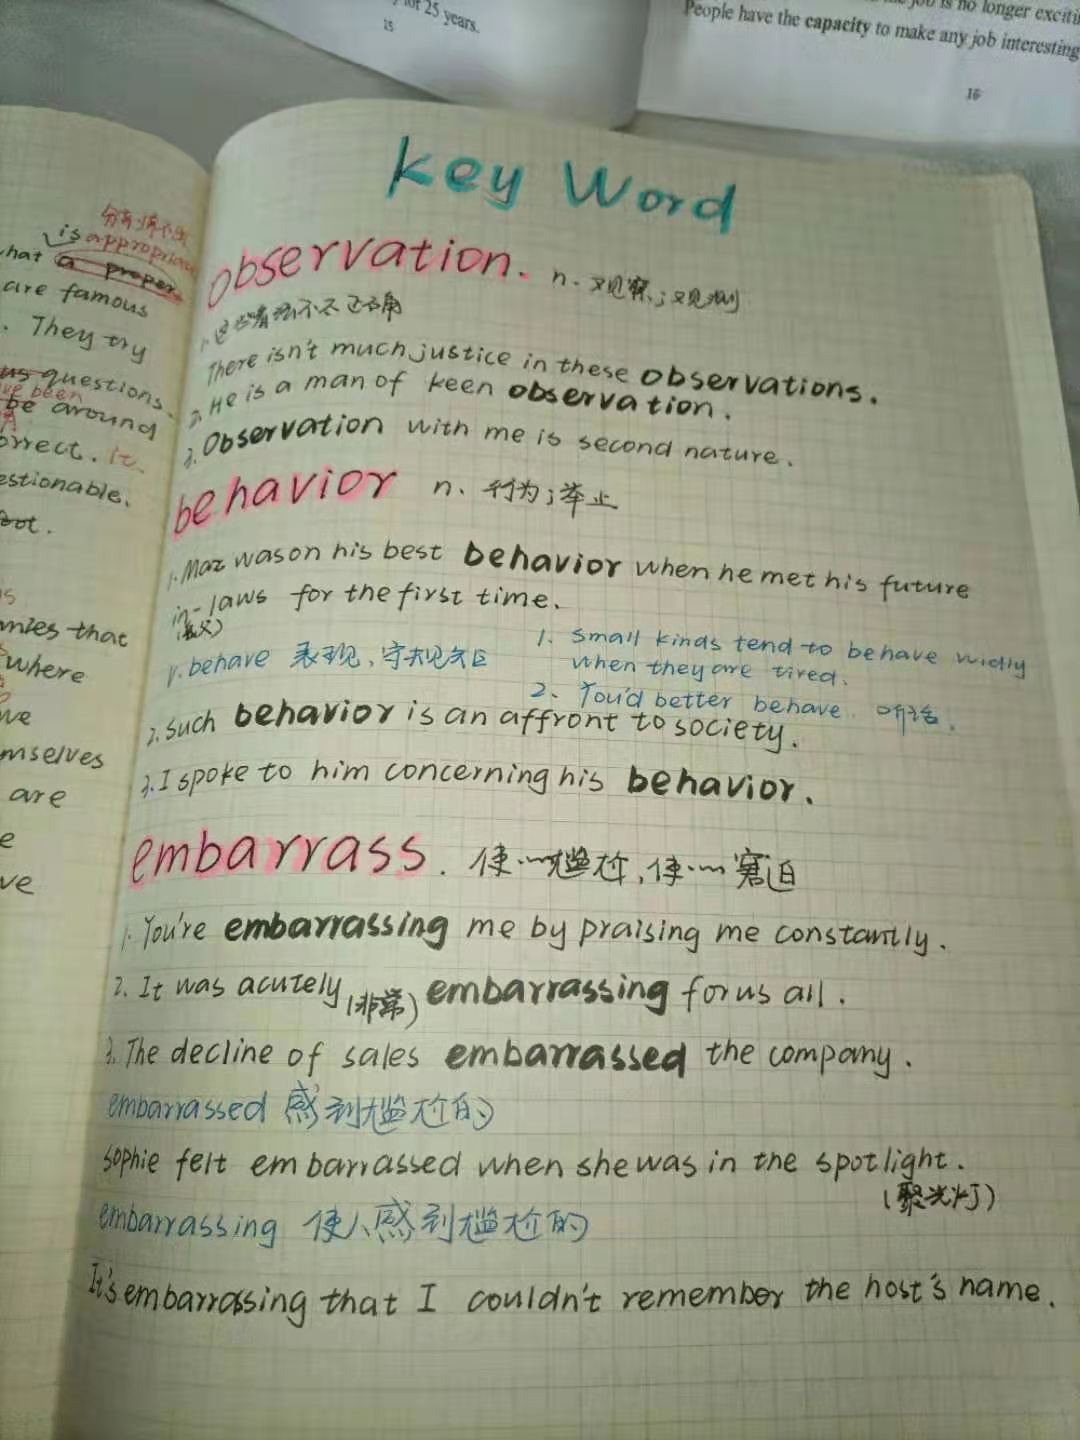 for 25 years.
15
is no longer exciti
People have the capacity to make any job interesting
16
is appropria
what a proper
are famous
. They try
questions.
be around
orrect. it
estionable.
mies that
where
ve
mselves
are
e
ve
key Word
observation. n. 观察;观测
There isn't much justice in these observations.
2. He is a man of keen observation.
3. Observation with me is second nature.
behavior n. 行为;举止
1. Max wason his best behavior when he met his future
in-laws for the first time.
v. behave 表现、守规矩
1. Small kinds tend to behave widly
when they are tired.
2、You'd better behave. 听话.
2. Such behavior is an affront to society.
3. I spoke to him concerning his behavior.
embarrass. 使…尴尬,使…窘迫
1. You're embarrassing me by praising me constantly.
2. It was acutely (非常) embarrassing for us all.
3. The decline of sales embarrassed the company.
embarrassed 感到尴尬的
Sophie felt embarrassed when she was in the spotlight.
(聚光灯)
embarrassing 使人感到尴尬的
It's embarrassing that I couldn't remember the host's name.